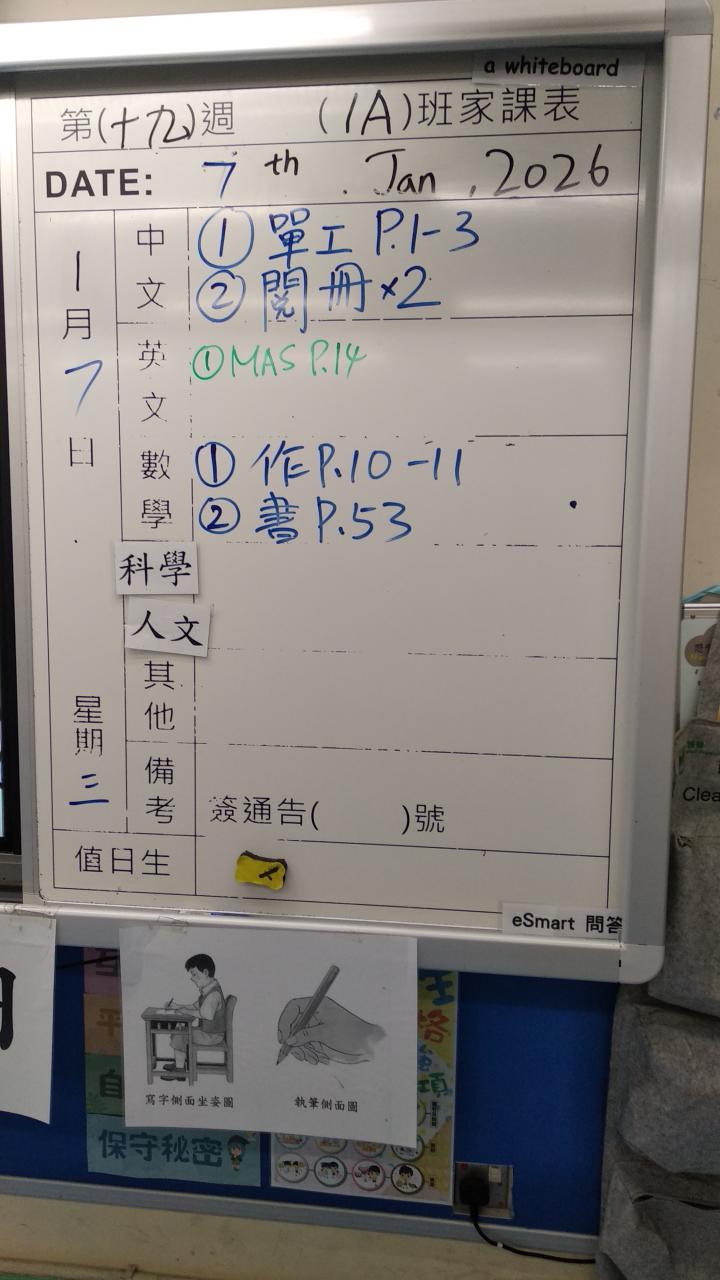 a whiteboard
第(十九)週 (1A)班家課表
DATE: 7th . Jan , 2026
1月7日
星期三
中文
① 單工 P.1-3
② 閱冊×2
英文
① MAS P.14
數學
① 作P.10-11
② 書P.53
科學
人文
其他
備考
簽通告( )號
值日生
eSmart 問答
寫字側面坐姿圖
執筆側面圖
保守秘密
Clea